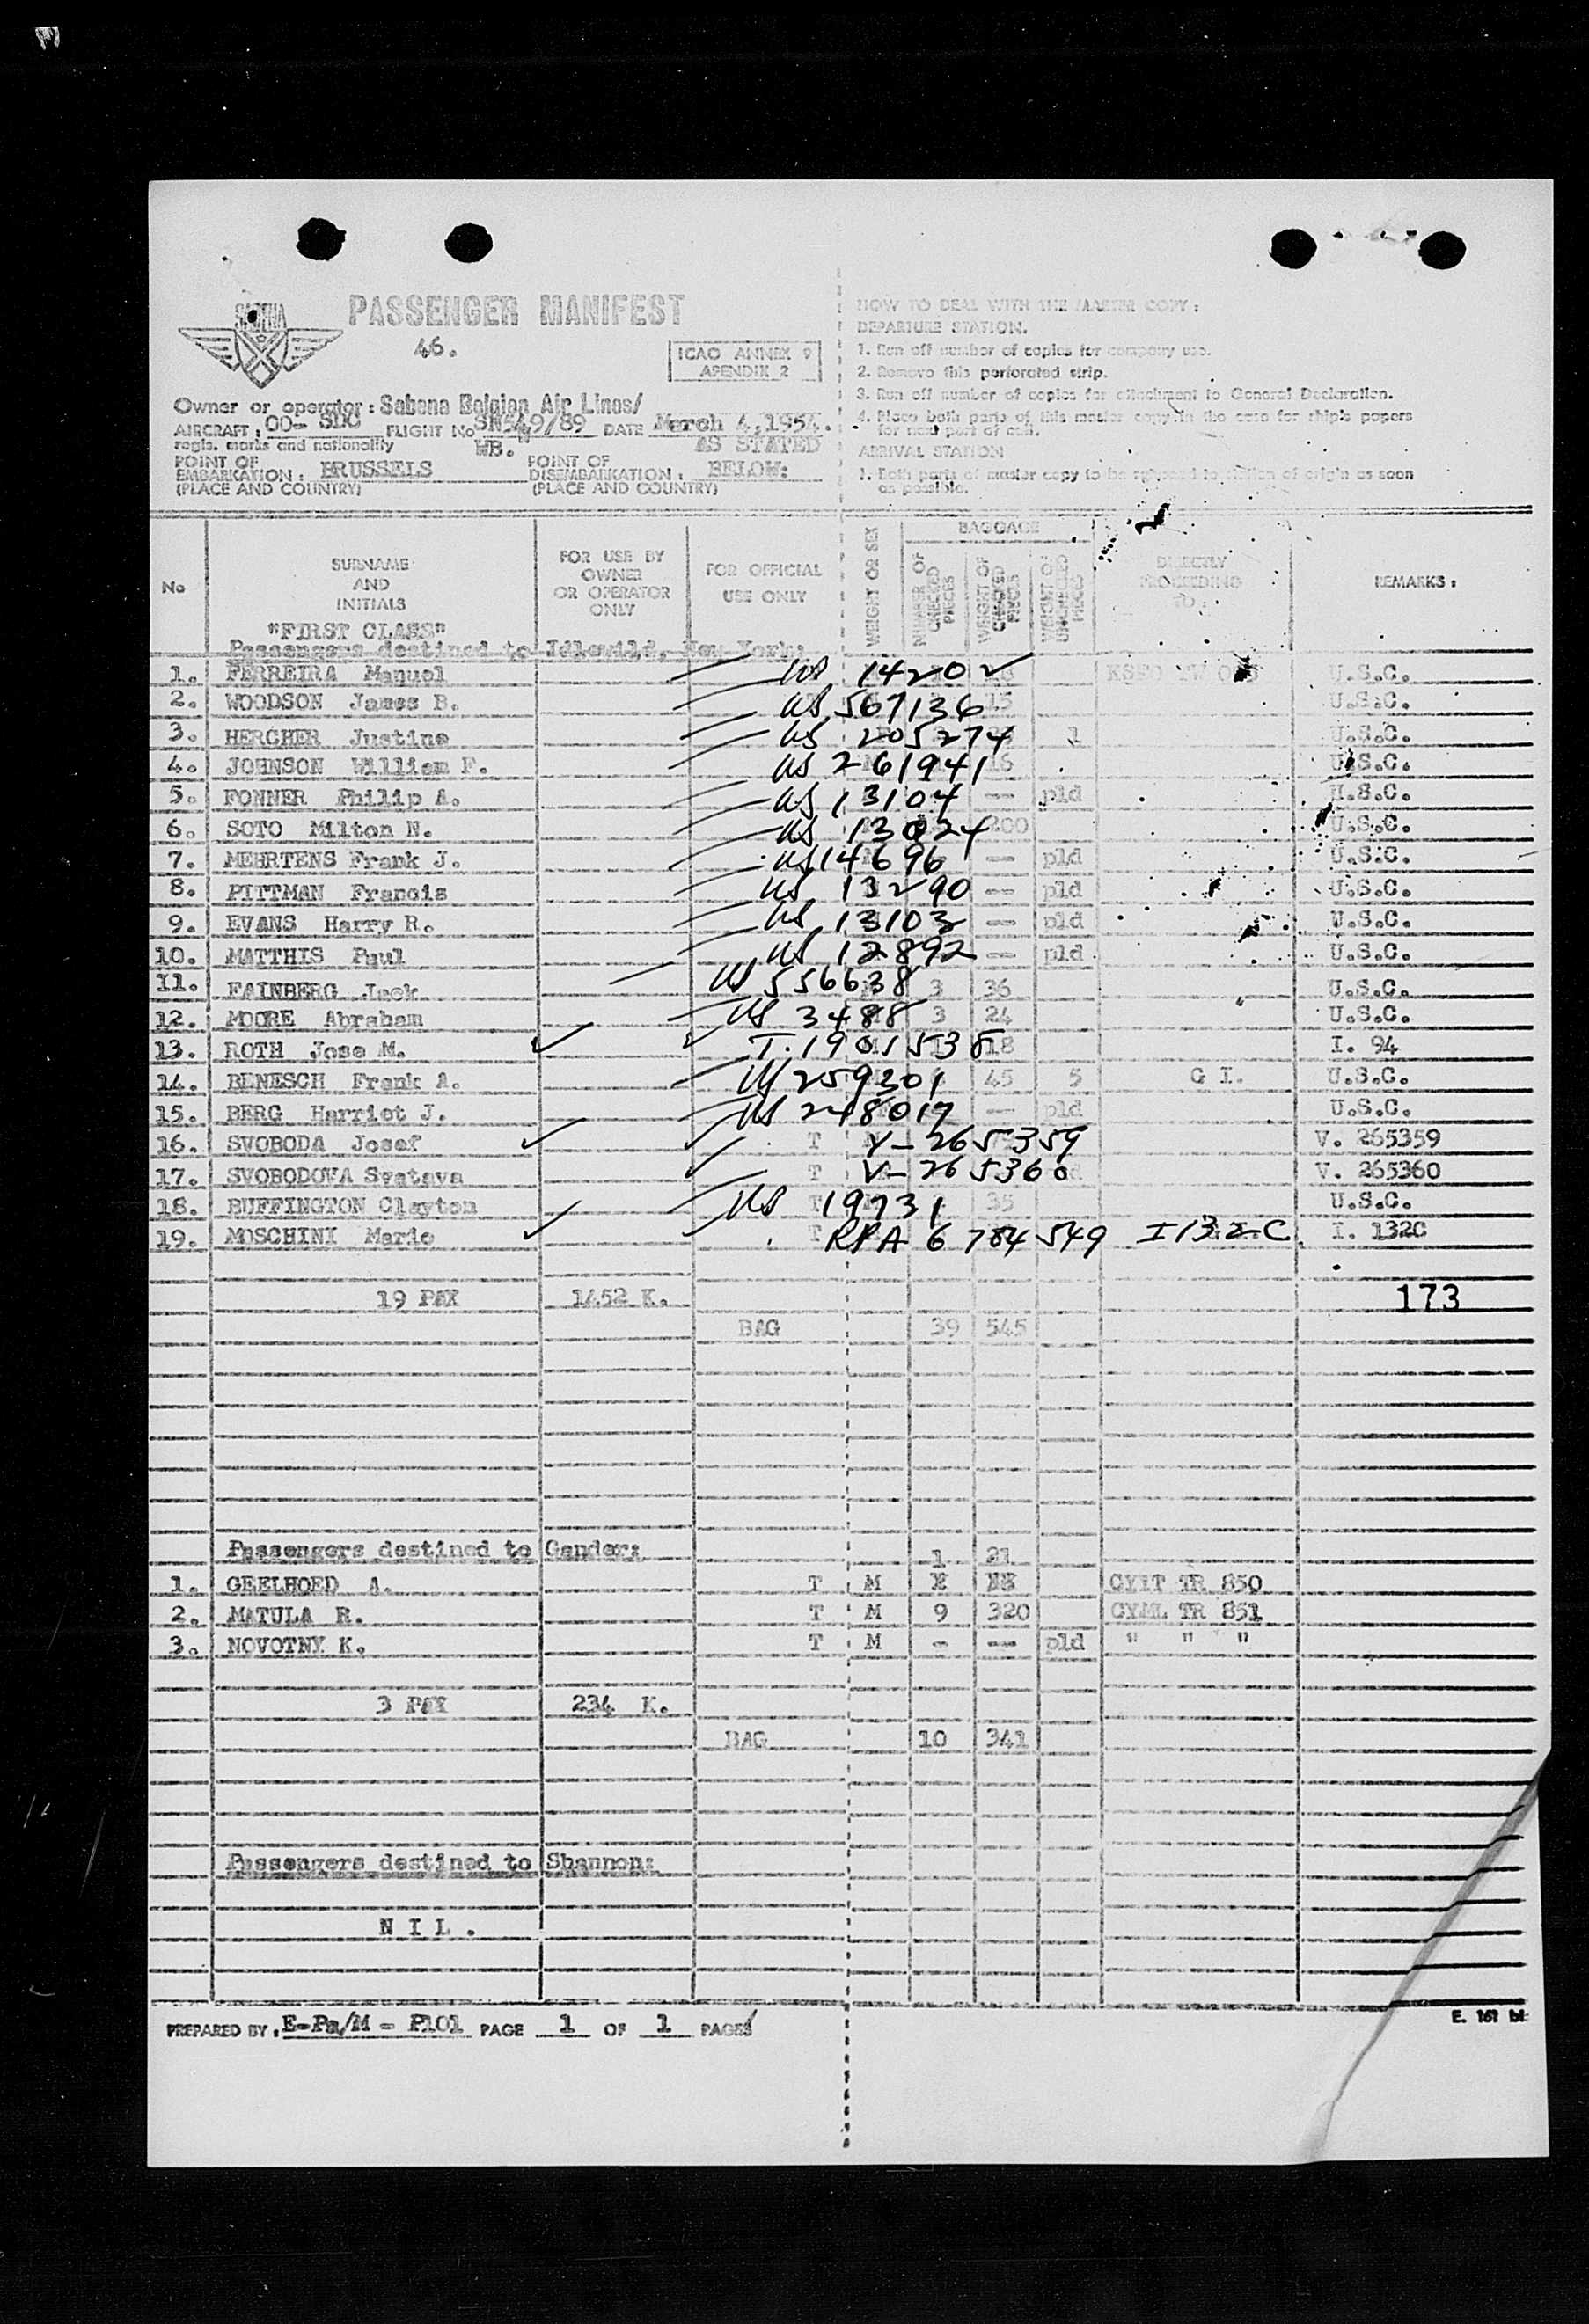 SABENA
PASSENGER MANIFEST
46.
ICAO ANNEX 9
APENDIX 2
Owner or operator : Sabena Belgian Air Lines/
AIRCRAFT : OO- SDC FLIGHT No SN549/89 DATE March 4,1954.
regis. marks and nationality WB. AS STATED
POINT OF EMBARKATION : BRUSSELS POINT OF DISEMBARKATION : BELOW:
(PLACE AND COUNTRY) (PLACE AND COUNTRY)
HOW TO DEAL WITH THE MASTER COPY :
DEPARTURE STATION.
1. Run off number of copies for company use.
2. Remove this perforated strip.
3. Run off number of copies for attachment to General Declaration.
4. Place both parts of this master copy in the case for ship's papers
for next port of call.
ARRIVAL STATION
1. Both parts of master copy to be to station of origin as soon
as possible.
No
SURNAME
AND
INITIALS
FOR USE BY
OWNER
OR OPERATOR
ONLY
FOR OFFICIAL
USE ONLY
WEIGHT OR SEX
BAGGAGE
NUMBER OF CHECKED PIECES
WEIGHT OF CHECKED PIECES
WEIGHT OF UNCHECKED PIECES
DIRECTLY
PROCEEDING
TO :
REMARKS :
"FIRST CLASS"
Passengers destined to Idlewild, New York:
1. FERREIRA Manuel US 14202 U.S.C.
2. WOODSON James B. US 567136 15 U.S.C.
3. HERCHER Justine US 205274 1 U.S.C.
4. JOHNSON William F. US 261941 16 U.S.C.
5. FONNER Philip A. US 13104 -- pld U.S.C.
6. SOTO Milton N. US 13024 200 U.S.C.
7. MEHRTENS Frank J. US 14696 -- pld U.S.C.
8. PITTMAN Francis US 13290 -- pld U.S.C.
9. EVANS Harry R. US 13103 -- pld U.S.C.
10. MATTHIS Paul US 12892 -- pld U.S.C.
11. FAINBERG Jack US 556638 3 36 U.S.C.
12. MOORE Abraham US 3488 3 24 U.S.C.
13. ROTH Jose M. T.1901538 18 I. 94
14. BENESCH Frank A. US 259301 45 5 G I. U.S.C.
15. BERG Harriet J. US 248017 -- pld U.S.C.
16. SVOBODA Josef T V-265359 V. 265359
17. SVOBODOVA Svatava T V-265360 V. 265360
18. BUFFINGTON Clayton US 19731 35 U.S.C.
19. MOSCHINI Mario T RPA 6 784 549 I 132C I. 132C
19 PAX 1452 K. 173
BAG 39 545
Passengers destined to Gander:
1 21
1. GEELHOED A. T M CYYT TR 850
2. MATULA R. T M 9 320 CYML TR 851
3. NOVOTNY K. T M - -- pld " " "
3 PAX 234 K.
BAG 10 341
Passengers destined to Shannon:
N I L .
PREPARED BY : E-Pa/M - P101 PAGE 1 OF 1 PAGES
E. 161 bl